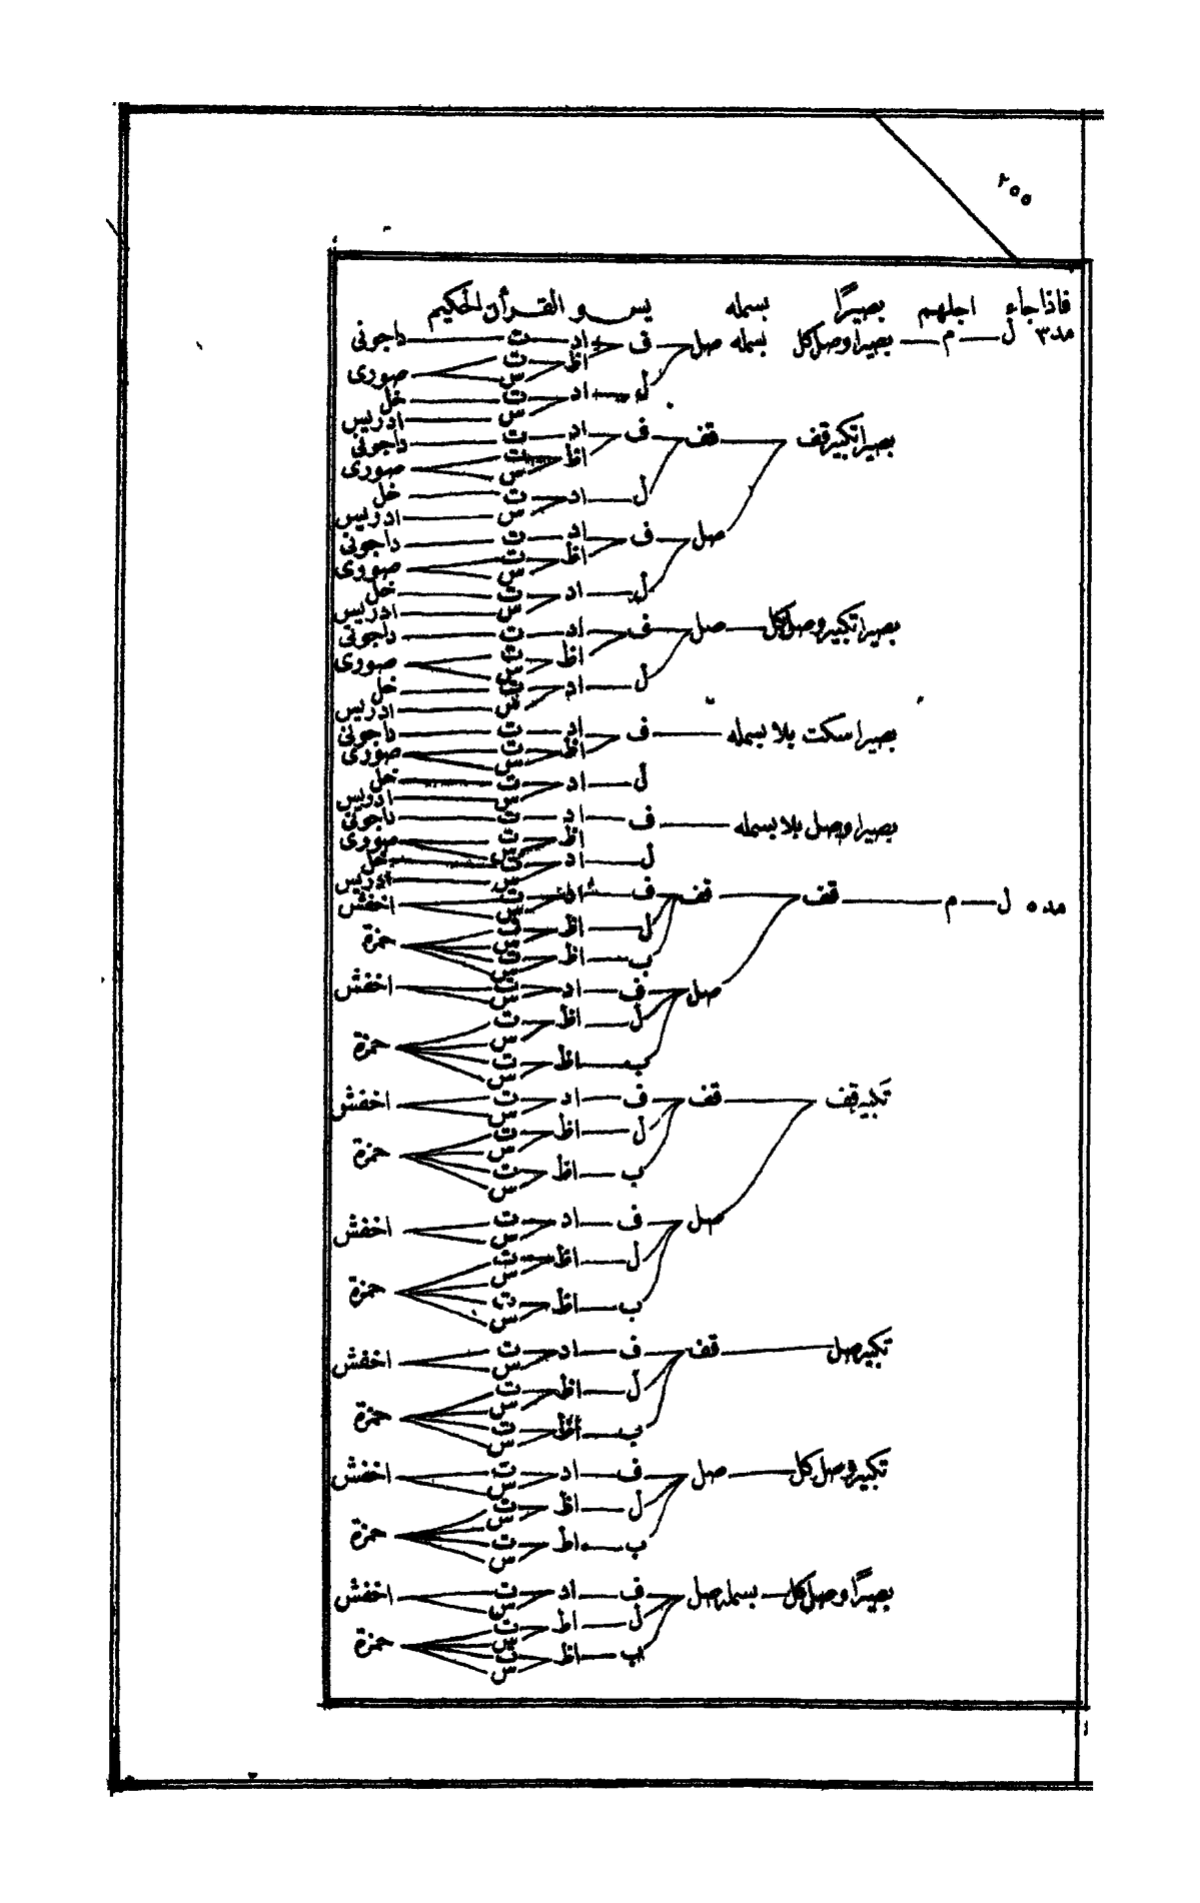 ٢٥٥
فاذا جاء اجلهم بصيرًا بسمله يس و القرأن الحكيم
مد٣ ل م بصيرا وصل كل بسمله صل ف اد ت داجونى
اظ ت س صورى
ل اد ت خل
س ادريس
بصيرا تكبير قف قف ف اد ت داجونى
اظ ت س صورى
ل اد ت خل
س ادريس
صل ف اد ت داجونى
اظ ت س صورى
ل اد ت خل
س ادريس
بصيرا تكبير وصل كل صل ف اد ت داجونى
اظ ت س صورى
ل اد ت خل
س ادريس
بصيرا سكت بلا بسمله ف اد ت داجونى
اظ ت س صورى
ل اد ت خل
س ادريس
بصيرا وصل بلا بسمله ف اد ت داجونى
اظ ت س صورى
ل اد ت خل
س ادريس
مد ٥ ل م قف قف ف اد ت س اخفش
ل اظ ت س حمزة
ب اظ ت س
صل ف اد ت س اخفش
ل اظ ت س حمزة
ب اظ ت س
تكبير قف قف ف اد ت س اخفش
ل اظ ت س حمزة
ب اظ ت س
صل ف اد ت س اخفش
ل اظ ت س حمزة
ب اظ ت س
تكبير صل قف ف اد ت س اخفش
ل اظ ت س حمزة
ب اظ ت س
تكبير وصل كل صل ف اد ت س اخفش
ل اظ ت س حمزة
ب اظ ت س
بصيرًا وصل كل بسمله صل ف اد ت س اخفش
ل اظ ت س حمزة
ب اظ ت س